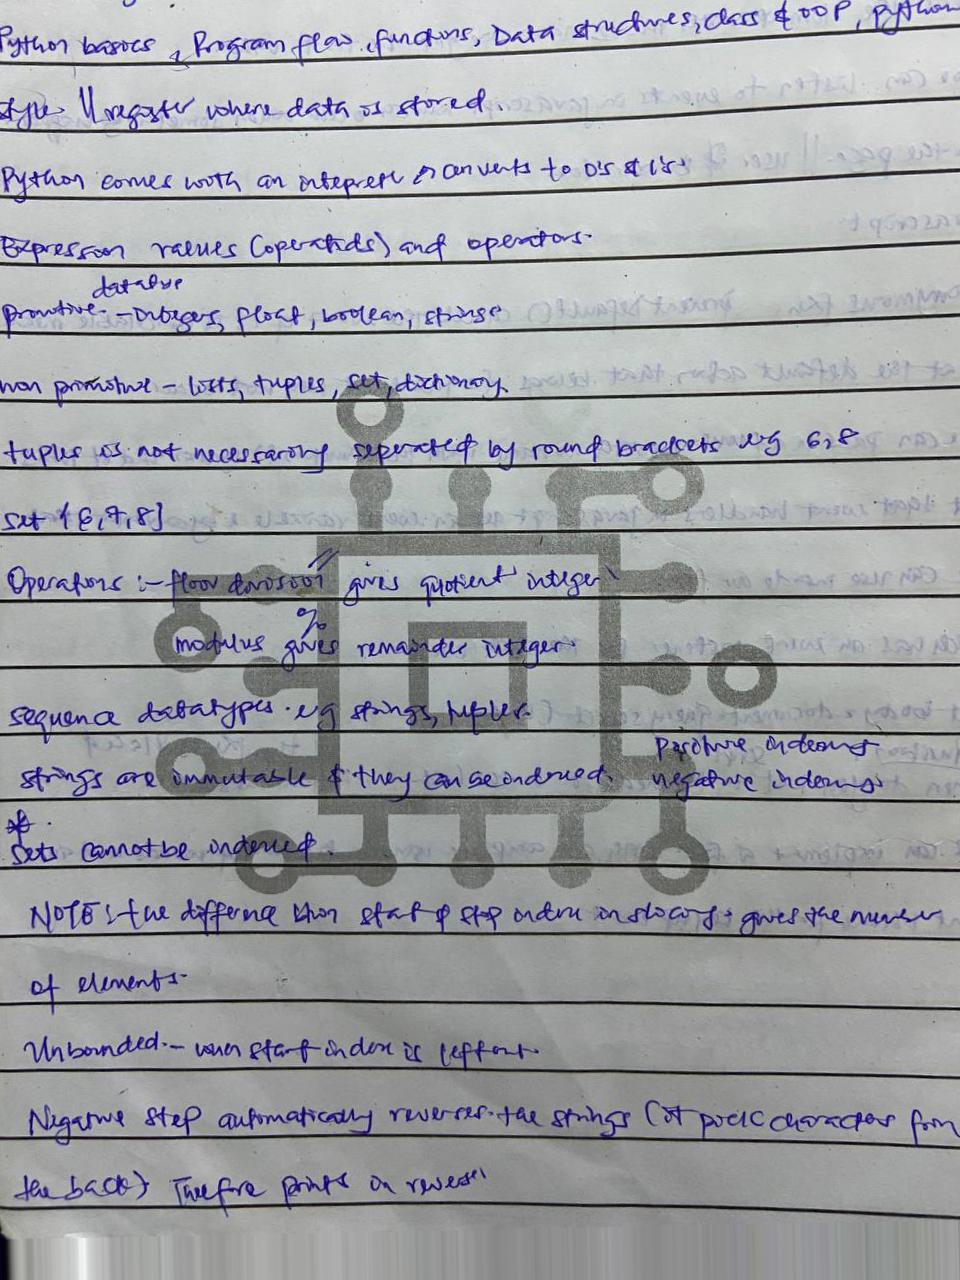 Python basics, Program flow, functions, Data structures, class & OOP, Python
style. || register where data is stored.
Python comes with an interpreter & converts to 0's & 1's.
Expression values (operands) and operators.
datatype
primitive - Integers, float, boolean, strings
non primitive - lists, tuples, set, dictionary.
tuples is not necessarily seperated by round brackets eg 6,8
set {6,7,8}
Operators :- floor division // gives quotient integer
%
modulus gives remainder integer.
sequence datatypes. eg strings, tuples.
positive indexing
strings are immutable & they can be indexed. negative indexing
Sets cannot be indexed.
NOTE: the difference btwn start & stop index in slicing gives the number
of elements.
Unbounded. - when start index is left out.
Negative step automatically reverses the strings (it picks characters from
the back) Therefore prints in reverse